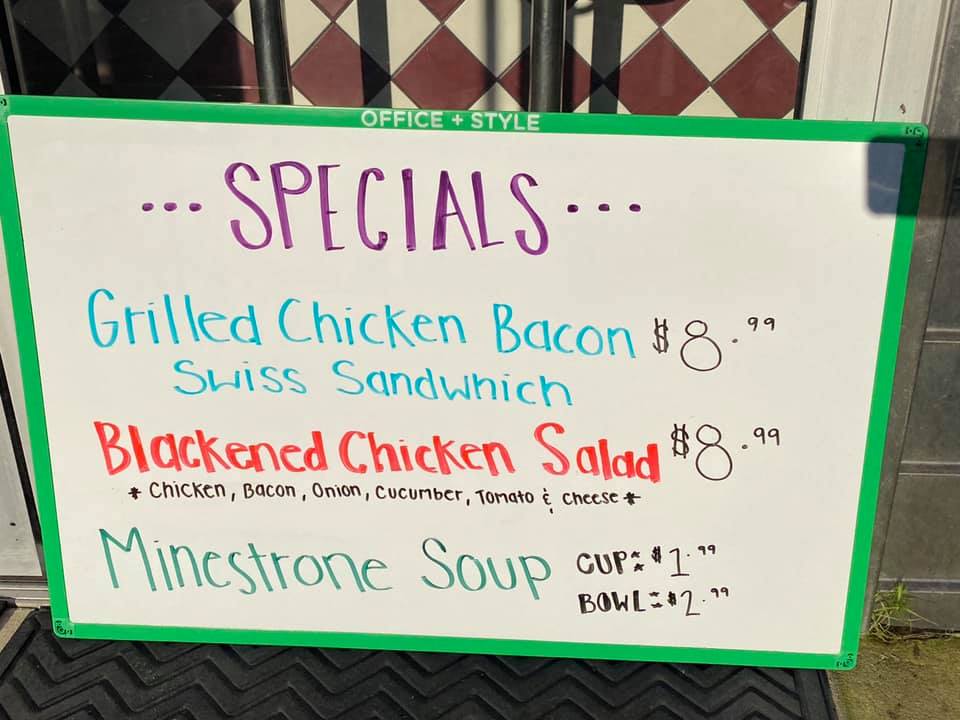 OFFICE + STYLE
... SPECIALS ...
Grilled Chicken Bacon $8.99
Swiss Sandwhich
Blackened Chicken Salad $8.99
* Chicken, Bacon, Onion, Cucumber, Tomato & Cheese *
Minestrone Soup CUP: $1.99
BOWL: $2.99